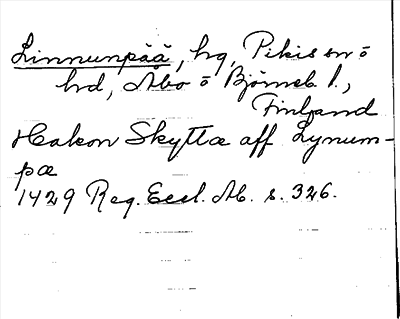 Linnunpää, hg, Pikis sn o
hd, Åbo o Björneb. l.,
Finland
Hakon Skytta aff Lynum-
pæ
1429 Reg. Eccl. Ab. s. 326.